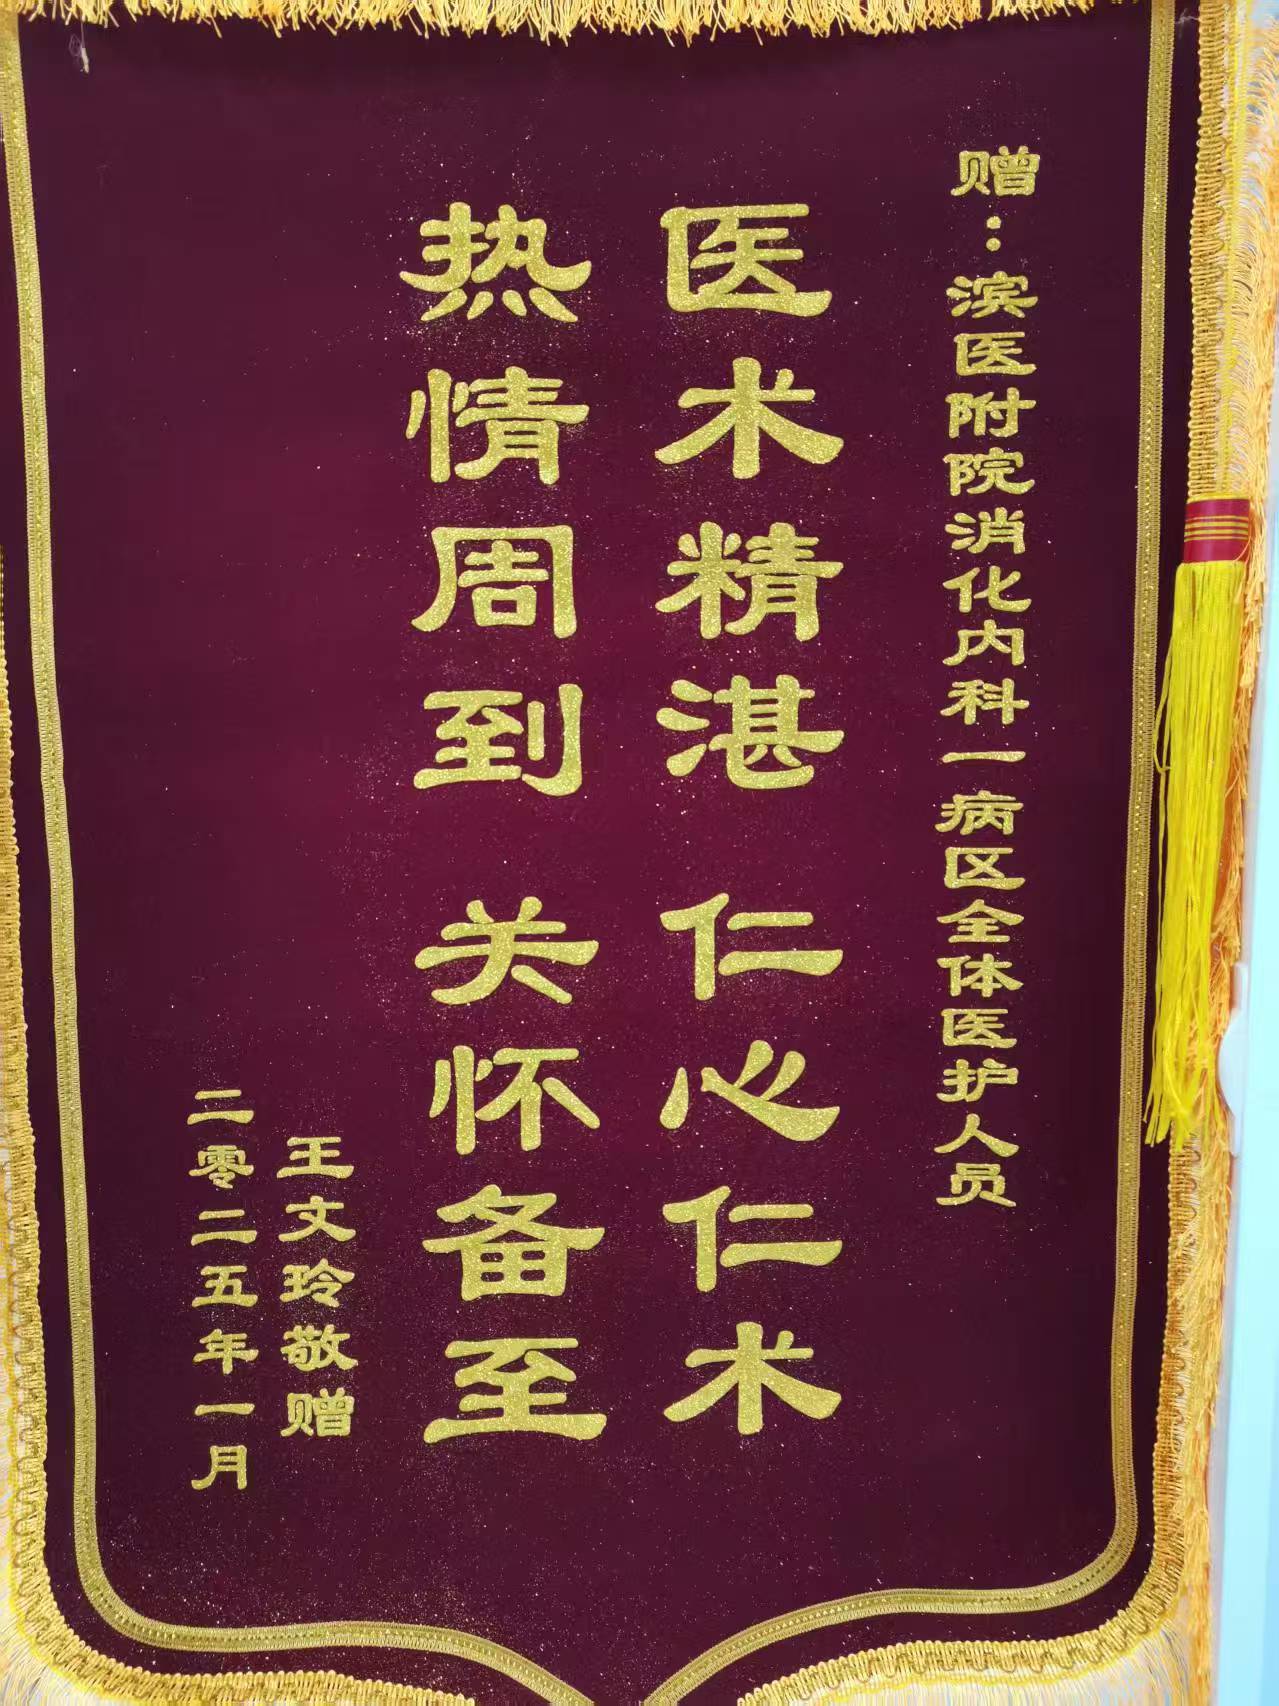 赠：滨医附院消化内科一病区全体医护人员
医术精湛 仁心仁术
热情周到 关怀备至
王文玲敬赠
二零二五年一月